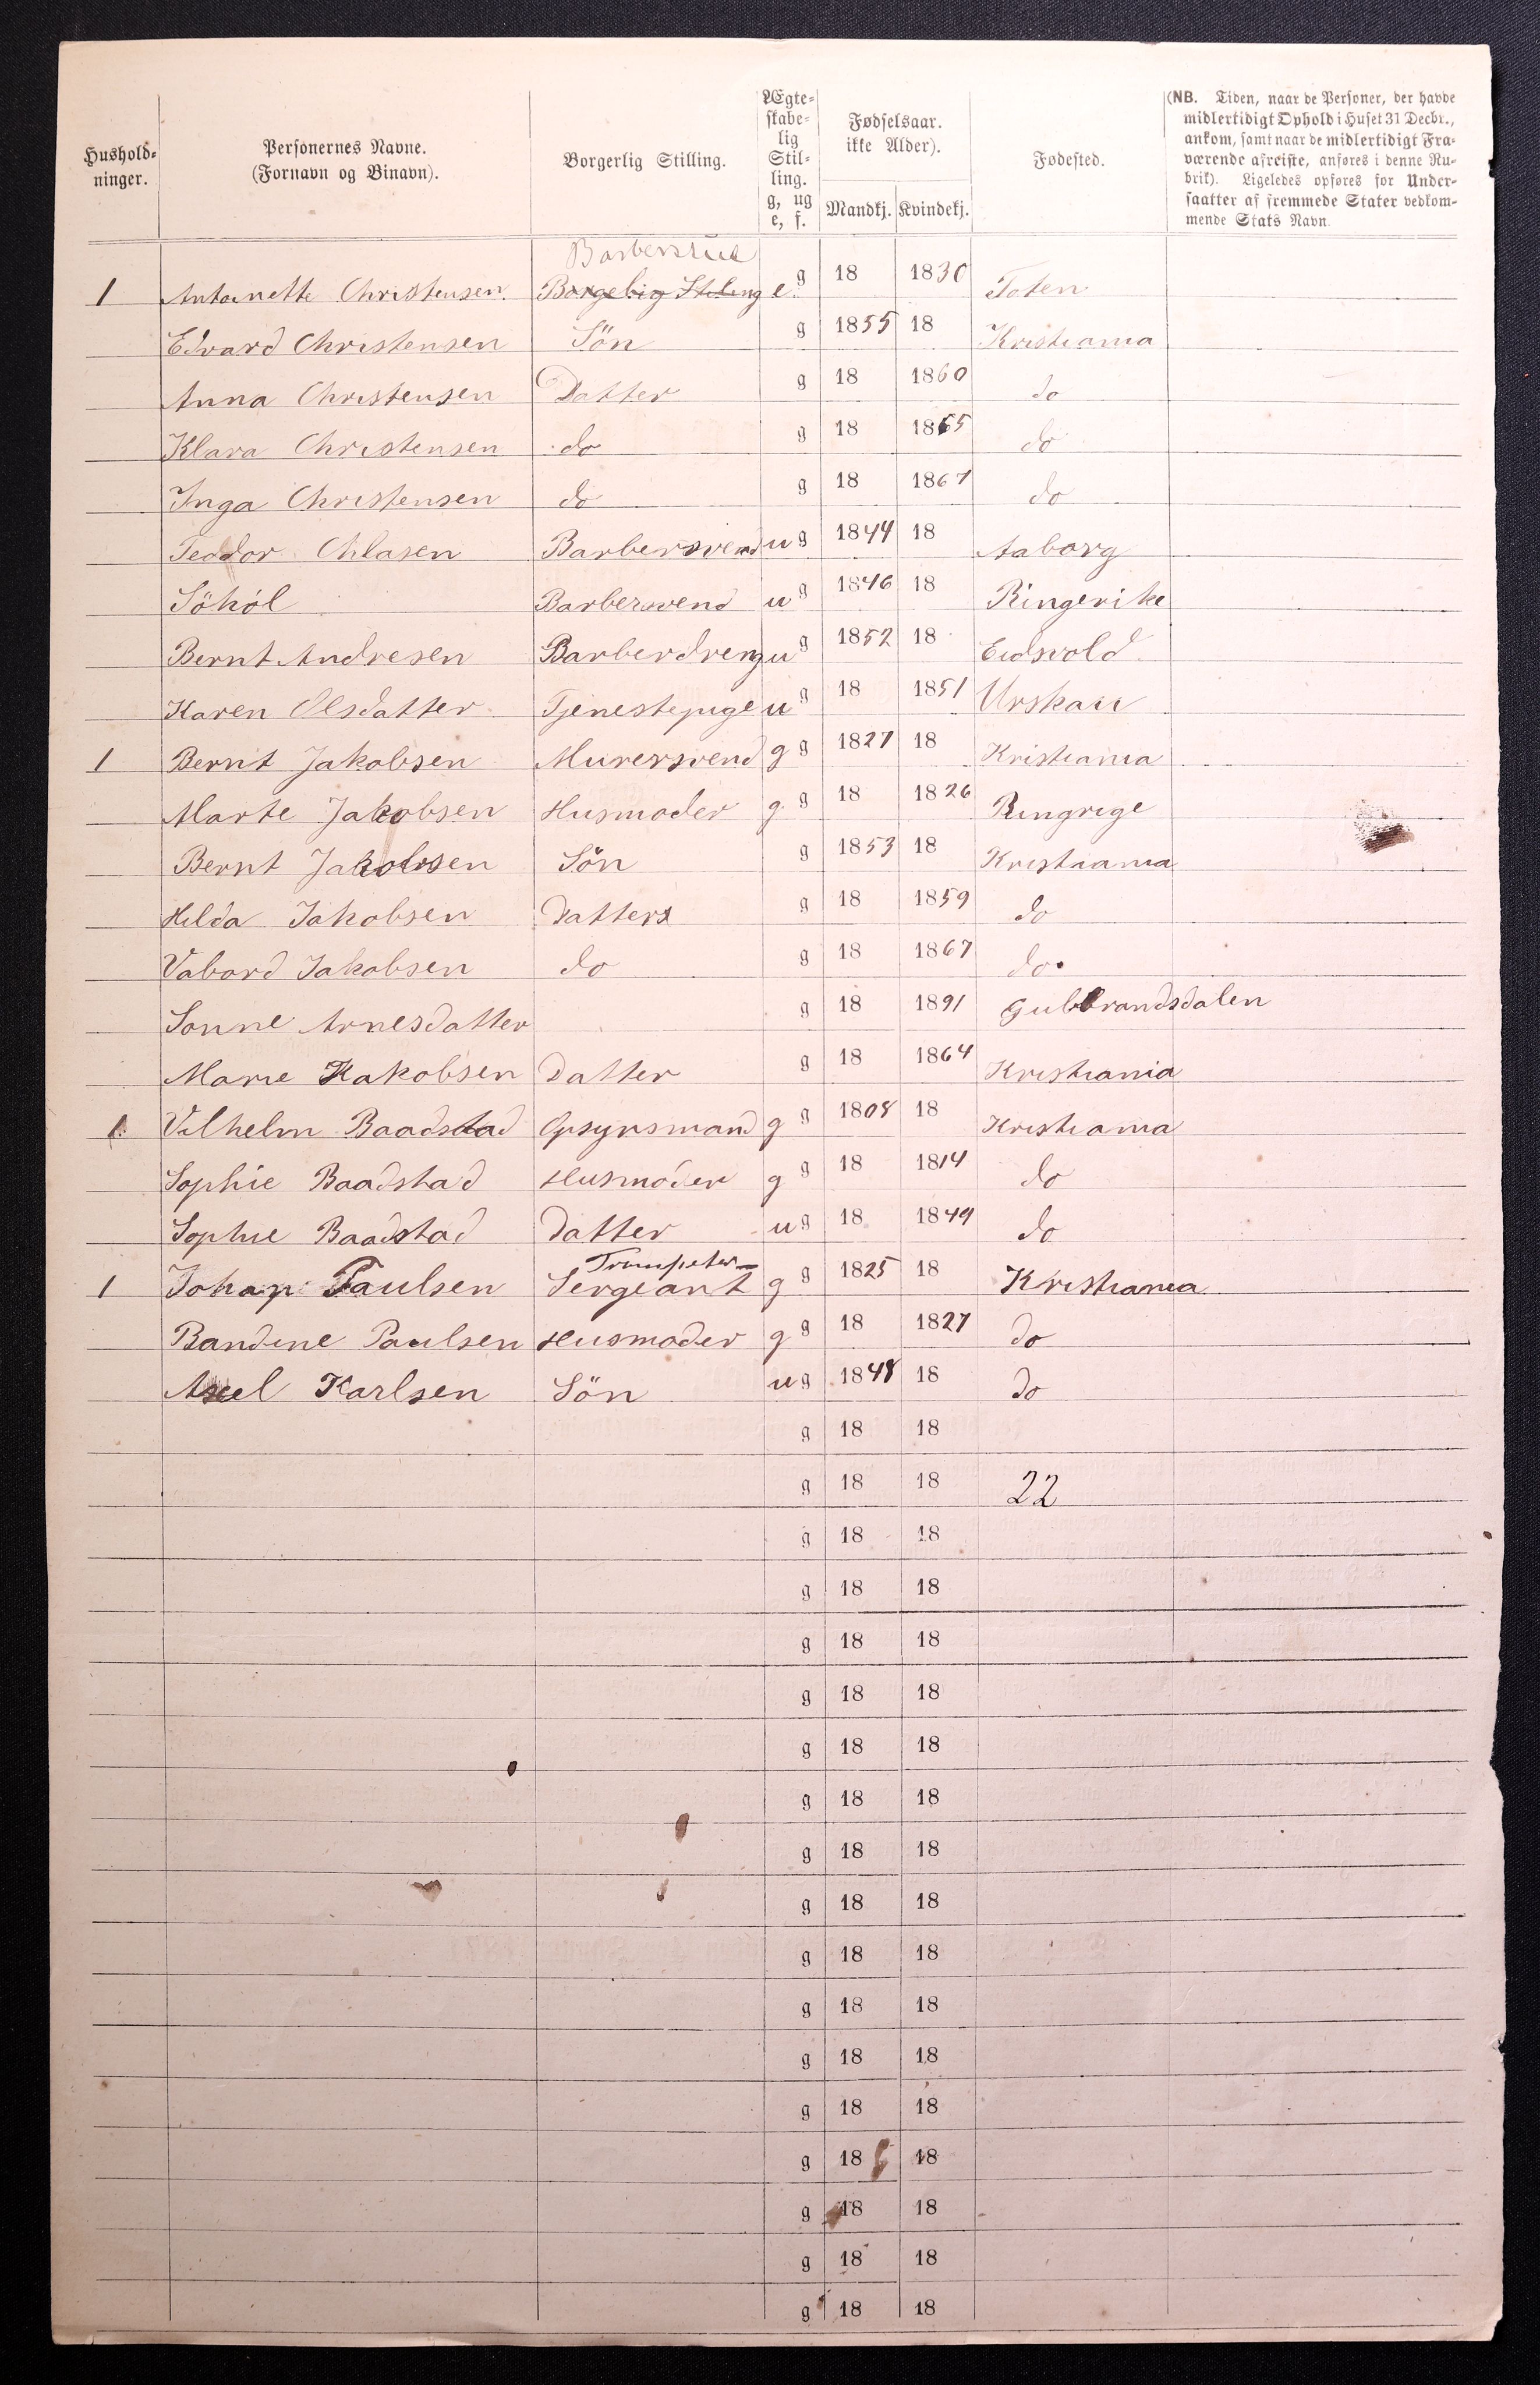 Hushold-
ninger.
Personernes Navne.
(Fornavn og Binavn).
Borgerlig Stilling.
Ægte-
skabe-
lig
Stil-
ling.
g, ug
e, f.
Fødselsaar.
ikke Alder).
Mandkj. Kvindekj.
Fødested.
(NB. Tiden, naar de Personer, der havde
midlertidigt Ophold i Huset 31 Decbr.,
ankom, samt naar de midlertidigt Fra-
værende afreiste, anføres i denne Ru-
brik). Ligeledes opføres for Under-
saatter af fremmede Stater vedkom-
mende Stats Navn.
1 Antonette Christensen Borgelig Stiling e g 18 1830 Toten
Edvard Christensen Sön g 1855 18 Kristiania
Anna Christensen Datter g 18 1860 do
Klara Christensen do g 18 1865 do
Inga Christensen do g 18 1867 do
Teodor Barbersvend u g 1844 18 Aaborg
Söhol Barbersvend u g 1846 18 Ringerike
Bernt Andresen Barberdreng u g 1852 18 Eidsvold
Karen Olsdatter Tjenestepige u g 18 1851 Urskau
1 Bernt Jakobsen Murersvend g g 1827 18 Kristiania
Marte Jakobsen Husmoder g g 18 1826 Ringrige
Bernt Jakobsen Sön g 1853 18 Kristiania
Hilda Jakobsen Datter g 18 1859 do
Vabord Jakobsen do g 18 1867 do
Sonne Arnesdatter g 18 1891 Gulbrandsdalen
Marie Kakobsen Datter g 18 1864 Kristiania
1 Vilhelm Baadstad Opsynsmand g g 1808 18 Kristiania
Sophie Baadstad Husmoder g g 18 1814 do
Sophie Baadstad Datter u g 18 1849 do
Trompeter
1 Johan Paulsen Sergeant g g 1825 18 Kristiania
Randine Paulsen Husmoder g g 18 1827 do
Axel Karlsen Sön u g 1848 18 do
g 18 18
g 18 18 22
g 18 18
g 18 18
g 18 18
g 18 18
g 18 18
g 18 18
g 18 18
g 18 18
g 18 18
g 18 18
g 18 18
g 18 18
g 18 18
g 18 18
g 18 18
g 18 18